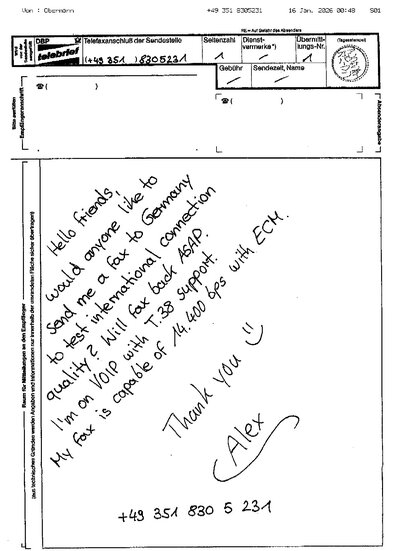 Von : Obermann +49 351 8305231 16 Jan. 2026 00:48 S01
NL = Auf Gefahr des Absenders
DBP Telefaxanschluß der Sendestelle Seitenzahl Dienst- Übermitt-
telebrief vermerke*) lungs-Nr. (Tagesstempel)
(+49 351 ) 8305231 1
Gebühr Sendezeit, Name
☎ ( )
☎ ( )
Bitte ausfüllen
Empfängeranschrift
Absenderangabe
Raum für Mitteilungen an den Empfänger
(aus technischen Gründen werden Angaben und Informationen nur innerhalb der umrandeten Fläche sicher übertragen)
Hello friends,
would anyone like to
send me a fax to Germany
to test international connection
quality? Will fax back ASAP.
I'm on VOIP with T.38 support.
My fax is capable of 14.400 bps with ECM.
Thank you :)
Alex
+49 351 830 5 231